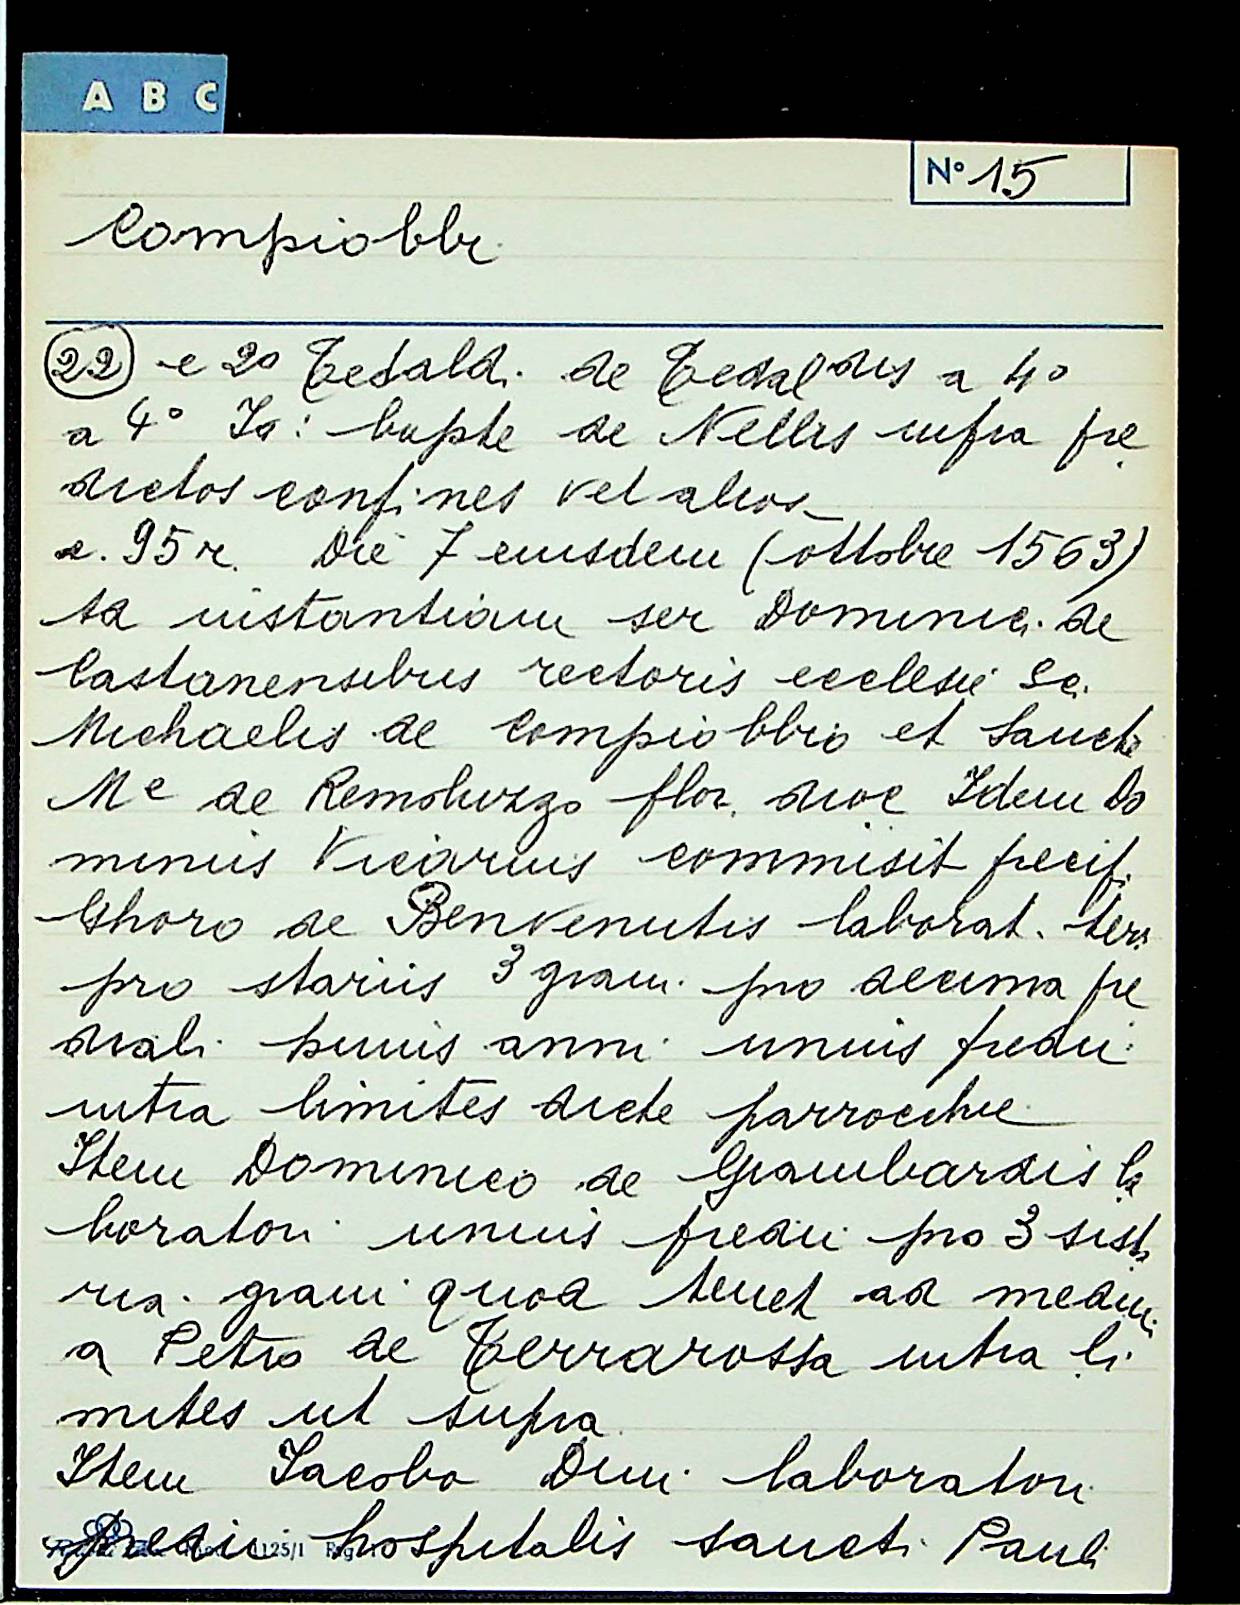 A B C
N° 15
Compiobbi
22 e 2° Tedaldi de Tedaldis a 4°
a 4° Io: bapte de Nellis infra pre
dictos confines vel alios
c. 95 r. Die 7 eiusdem (ottobre 1563)
ad instantiam ser Dominici de
Castanensibus rectoris ecclesie Sci
Michaelis de Compiobbio et Sancte
Me de Remoluzzo flor. dioc Idem Do
minus Vicarius commisit precip.
Ghoro de Benvenutis laborat. terr.
pro stariis 3 grani pro decima pre
diali huius anni unius predii
intra limites dicte parrochie
Item Dominico de Giambardis la
boratori unius predii pro 3 sista
ria grani quod tenet ad medium
a Petro de Terrarossa intra li
mites ut supra
Item Iacobo Dini laboratori
predii hospitalis sancti Pauli
1125/1